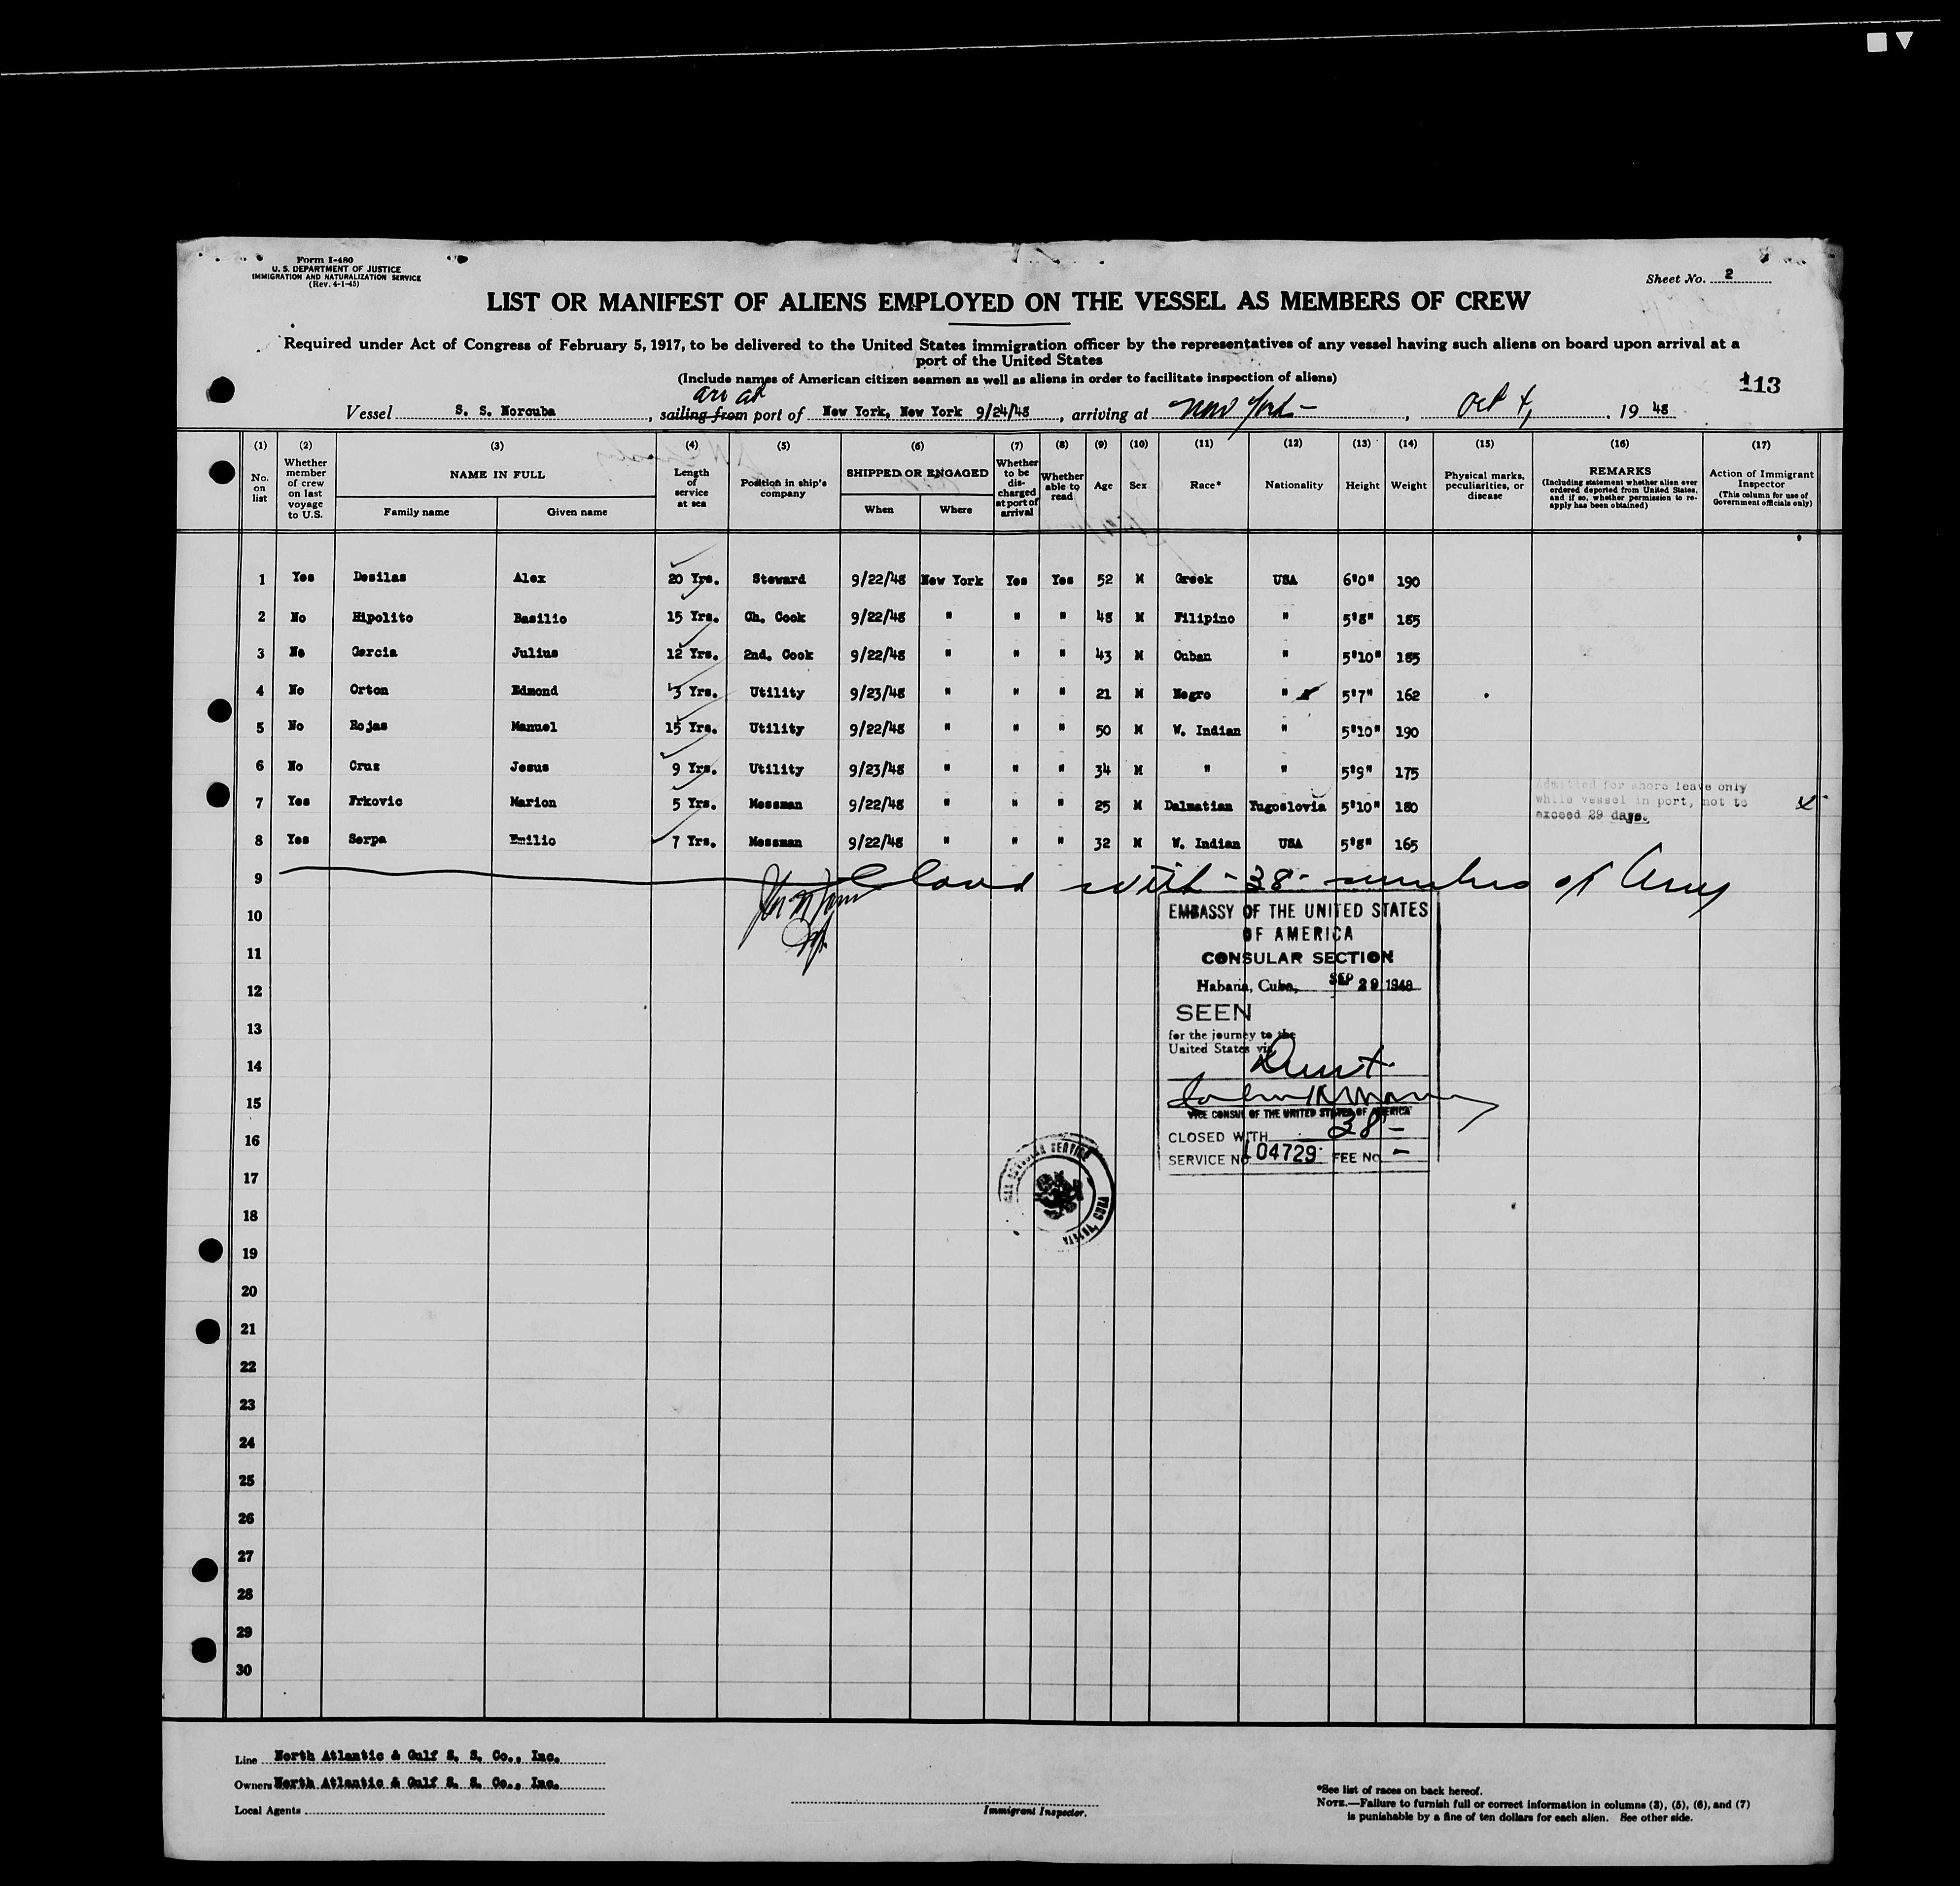 Form I-480
U. S. DEPARTMENT OF JUSTICE
IMMIGRATION AND NATURALIZATION SERVICE
(Rev. 4-1-45)
Sheet No. 2
LIST OR MANIFEST OF ALIENS EMPLOYED ON THE VESSEL AS MEMBERS OF CREW
Required under Act of Congress of February 5, 1917, to be delivered to the United States immigration officer by the representatives of any vessel having such aliens on board upon arrival at a
port of the United States
(Include names of American citizen seamen as well as aliens in order to facilitate inspection of aliens)
113
arr at
Vessel S. S. Norcuba, sailing from port of New York, New York 9/24/48, arriving at New York, Oct 4, 1948
(1) (2) (3) (4) (5) (6) (7) (8) (9) (10) (11) (12) (13) (14) (15) (16) (17)
No. on list
Whether member of crew on last voyage to U.S.
NAME IN FULL
Family name
Given name
Length of service at sea
Position in ship's company
SHIPPED OR ENGAGED
When
Where
Whether to be discharged at port of arrival
Whether able to read
Age
Sex
Race*
Nationality
Height
Weight
Physical marks, peculiarities, or disease
REMARKS
(Including statement whether alien ever ordered deported from United States, and if so, whether permission to reapply has been obtained)
Action of Immigrant Inspector
(This column for use of Government officials only)
1 Yes Desilas Alex 20 Yrs. Steward 9/22/48 New York Yes Yes 52 M Greek USA 6'0" 190
2 No Hipolito Basilio 15 Yrs. Ch. Cook 9/22/48 " " " 48 M Filipino " 5'8" 185
3 No Garcia Julius 12 Yrs. 2nd. Cook 9/22/48 " " " 43 M Cuban " 5'10" 185
4 No Orton Edmond 3 Yrs. Utility 9/23/48 " " " 21 M Negro " 5'7" 162
5 No Rojas Manuel 15 Yrs. Utility 9/22/48 " " " 50 M W. Indian " 5'10" 190
6 No Cruz Jesus 9 Yrs. Utility 9/23/48 " " " 34 M " " 5'9" 175
7 Yes Frkovic Marion 5 Yrs. Messman 9/22/48 " " " 25 M Dalmatian Yugoslovia 5'10" 180
Admitted for shore leave only
while vessel in port, not to
exceed 29 days.
8 Yes Serpa Emilio 7 Yrs. Messman 9/22/48 " " " 32 M W. Indian USA 5'8" 165
9 Closed with -38- members of Crew
10
EMBASSY OF THE UNITED STATES
OF AMERICA
11
CONSULAR SECTION
12
Habana, Cuba, SEP 29 1948
SEEN
13
for the journey to the
United States via
14
Direct
15
VICE CONSUL OF THE UNITED STATES OF AMERICA
16
CLOSED WITH 38-
SERVICE No 104729 FEE No -
17
CONSULAR SERVICE
HABANA, CUBA
18
19
20
21
22
23
24
25
26
27
28
29
30
Line North Atlantic & Gulf S. S. Co., Inc.
Owners North Atlantic & Gulf S. S. Co., Inc.
Local Agents
Immigrant Inspector.
*See list of races on back hereof.
NOTE.—Failure to furnish full or correct information in columns (3), (5), (6), and (7)
is punishable by a fine of ten dollars for each alien. See other side.